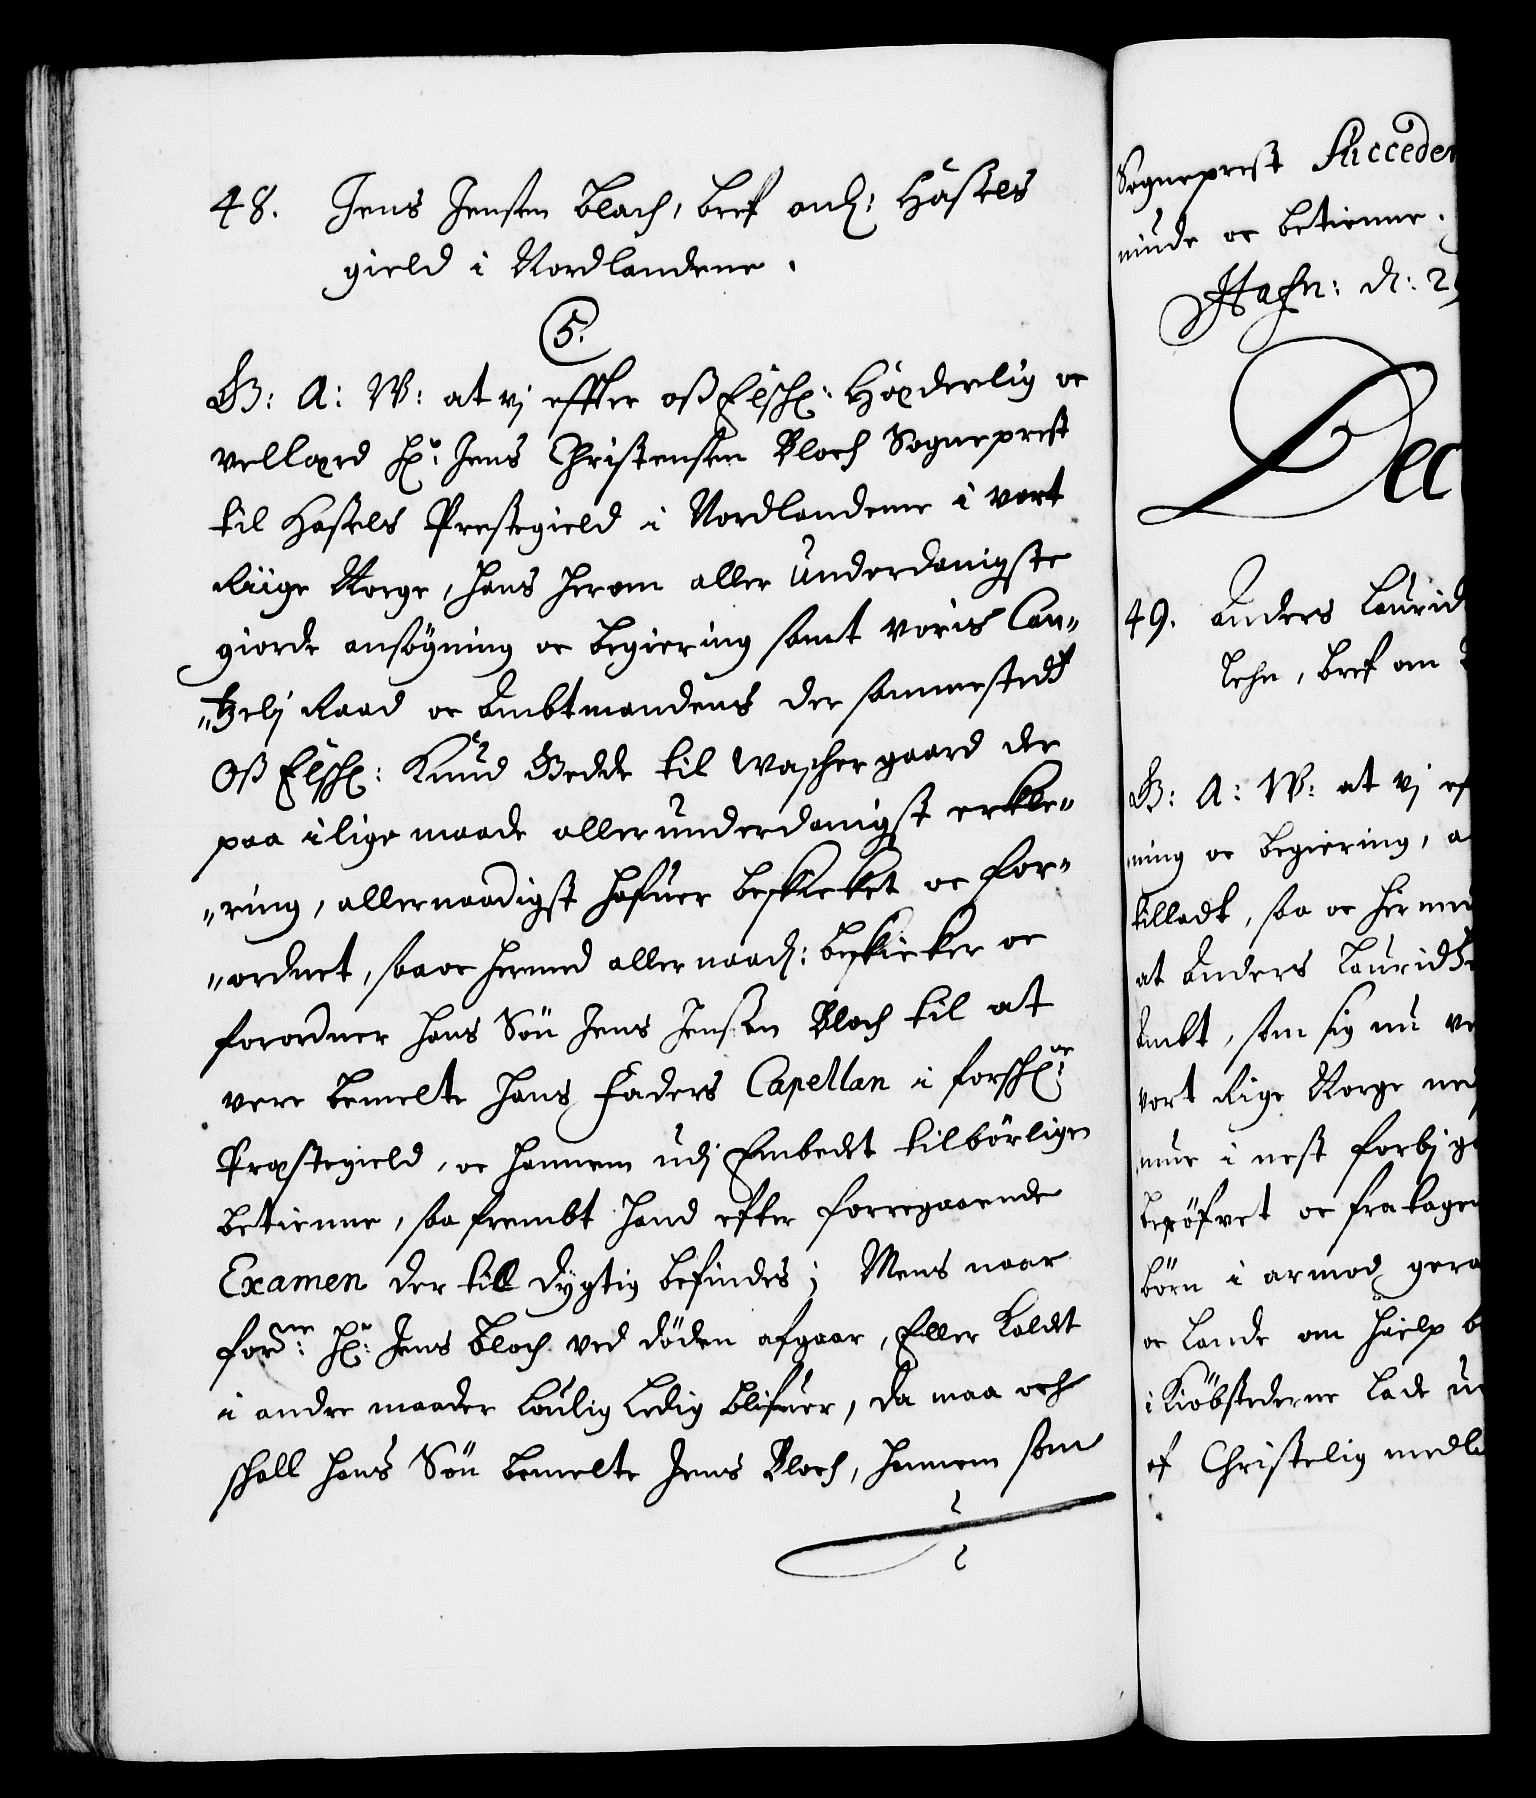 48. Jens Jensen Bloch, bref anl: Hassels
gield i Nordlandene.
5.
G: A: W: at vj effter oß Elschl: Hæderlig oc
vellærd Hr: Jens Christensen Bloch Sogneprest
til Hassels Prestegield i Nordlandene i vort
Riige Norge, hans herom aller underdanigste
giorde ansøgning oc begiering samt voris Can„
„tzelj Raad oc Ambtmandens der sammestedt
Oß Elschl: Knud Gedde til Waschergaard der
paa i lige maade allerunderdanigst erkle„
„ring, allernaadigst hafuer beskicket oc for„
„ordnet, saa oc hermed allernaad: beskicker oc
forordner hans Søn Jens Jensen Bloch til at
vere bemelte hans Faders Capellan i forschr:ne
Præstegield, oc hannem udj Embedet tilbørligen
betienne, saa frembt hand efter forregaaende
Examen der till dygtig befindes; Mens naar
ford:ne Hr: Jens Bloch ved døden afgaar, Eller kaldet
i andre maader loulig ledig blifuer, da maa och
schall hans Søn bemelte Jens Bloch, hannem som
Sogneprest Succeder
miude oc betienne.
Hafn: d: 2
Dec
49. Anders Laurid
Lehn, bref om
G: A: W: at vj ef
ning oc begiering, a
tilladt, saa oc hermed
at Anders Lauridtz
Ambt, som sig nu ve
vort Rige Norge ned
mue i nest forbj ga
berøfvet oc fratagen
børn i armod gera
oc Lande om hielp b
i Kiøbstederne lade u
af Christelig medli